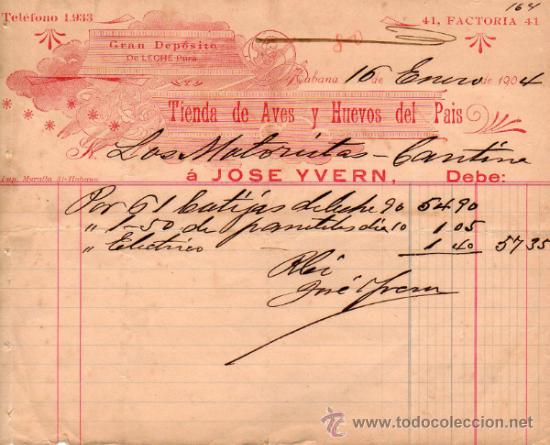 164
Teléfono 1.933
41, FACTORIA 41
Gran Depósito
De LECHE Pura
Habana 16 de Enero de 1904
Tienda de Aves y Huevos del Pais
Los Motoristas - Cantina
á JOSE YVERN, Debe:
Imp. Muralla 31-Habana
Por 61 botijas de leche 90 54.90
" 1-50 de dia 10 1.05
" Electrico 1.40 57.35
José Yvern
todocoleccion.net